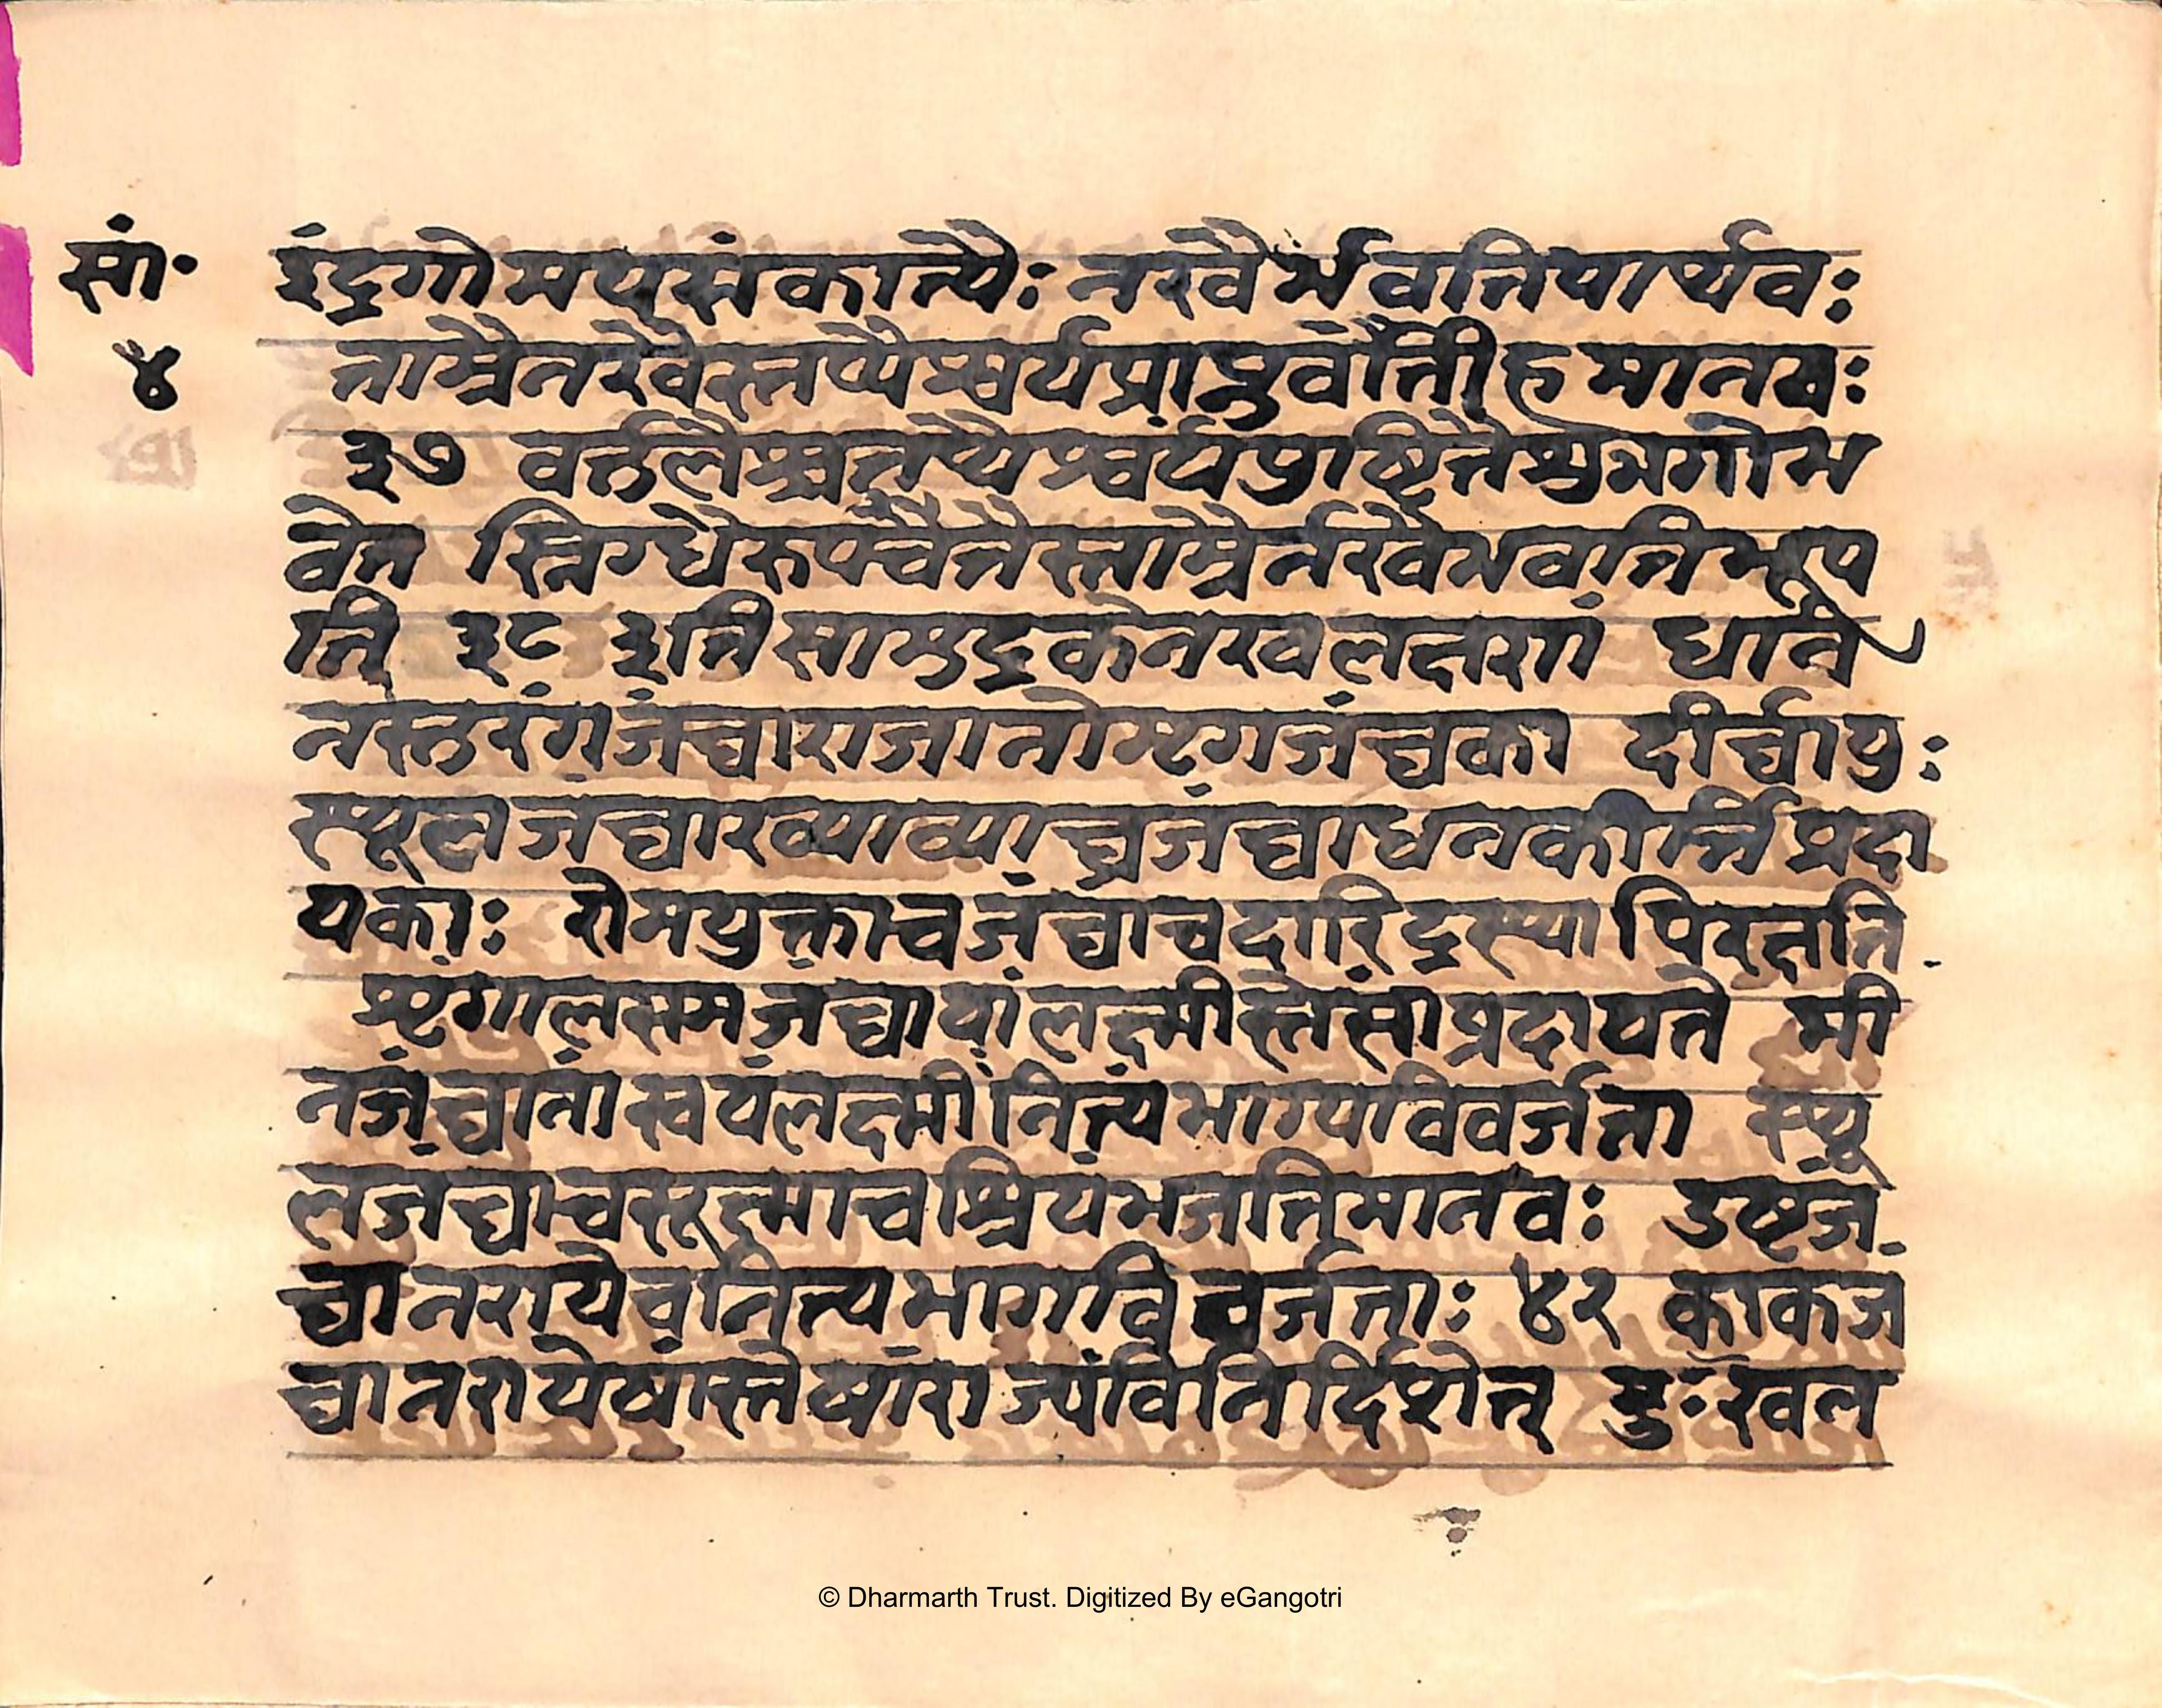 सां॰
४
इंदुगोमयसंकात्यैः नखैर्भवंतिपार्थवः
ताम्रैनखेवेस्तप्यैश्वर्यप्राप्नुवोंतीहमानवः
३७ वर्तलैश्चत्तप्यैश्वर्यपुाष्टितैशुभगोभ
वेत स्निग्धेरुपवैत्तेस्ताम्रेर्नखेभवंतिभूप
ति ३८ इतिसामुद्रकेनखलक्षणां धाति
नस्तरंगजंघाराजानोमृगजंघका दीर्घायुः
स्थूलजंघाख्याव्याघ्रजंघाधनकीर्त्तिप्रदा
यकाः रोमयुक्ताचजंघाचदारिद्रस्यापिरक्षति
शृगालसमजंघायांलक्ष्मीस्तेसांप्रदायते मी
नजंघानांस्वयंलक्ष्मींनित्यंभाग्यविवर्जता स्थू
लजंघाचसूक्ष्माचश्रियंभजतिमानवः उष्ट्रजं
घानरायेचनित्यभागविवर्जताः ४१ काकजं
घानरायेषांस्तेषांराज्यंविनिर्दिशेत् दुःखल
© Dharmarth Trust. Digitized By eGangotri